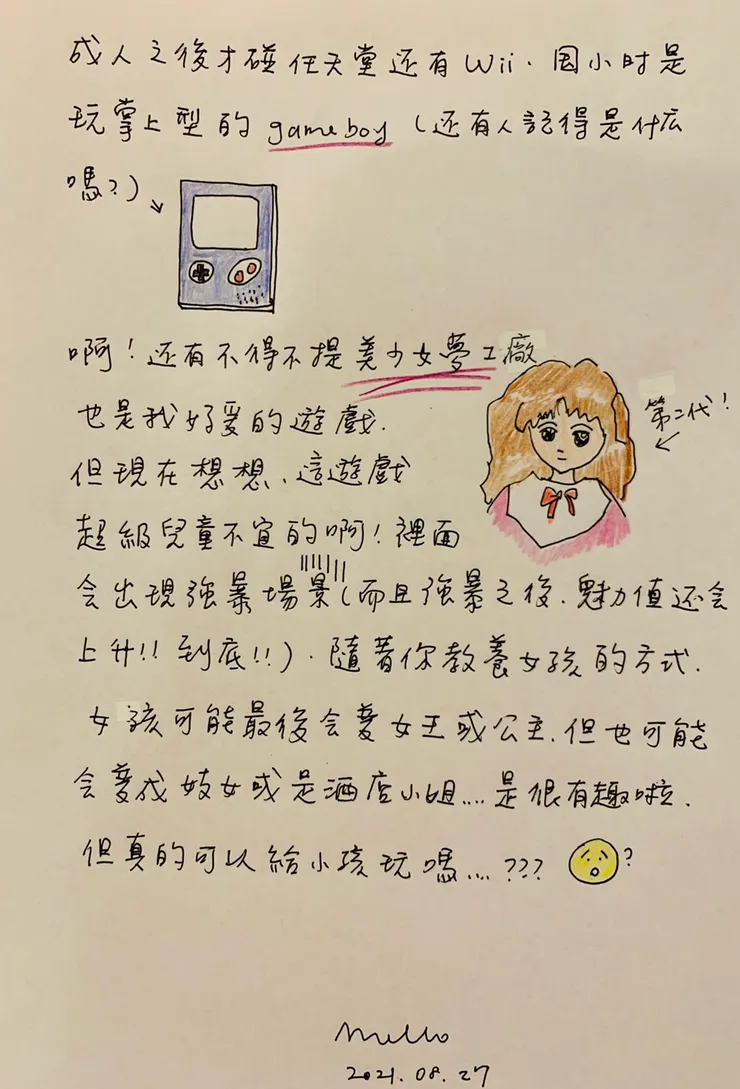 成人之後才碰任天堂还有Wii. 国小时是
玩掌上型的 gameboy (还有人記得是什么
嗎?)
啊! 还有不得不提美少女夢工廠
第二代!
也是我好爱的遊戲.
但現在想想、這遊戲
超級兒童不宜的啊! 裡面
会出現強暴場景(而且強暴之後.魅力值还会
上升!! 到底!!). 隨著你教養女孩的方式.
女孩可能最後会變女王或公主.但也可能
会變成妓女或是酒店小姐....是很有趣啦.
但真的可以給小孩玩嗎....???
?
Mello
2021.08.27